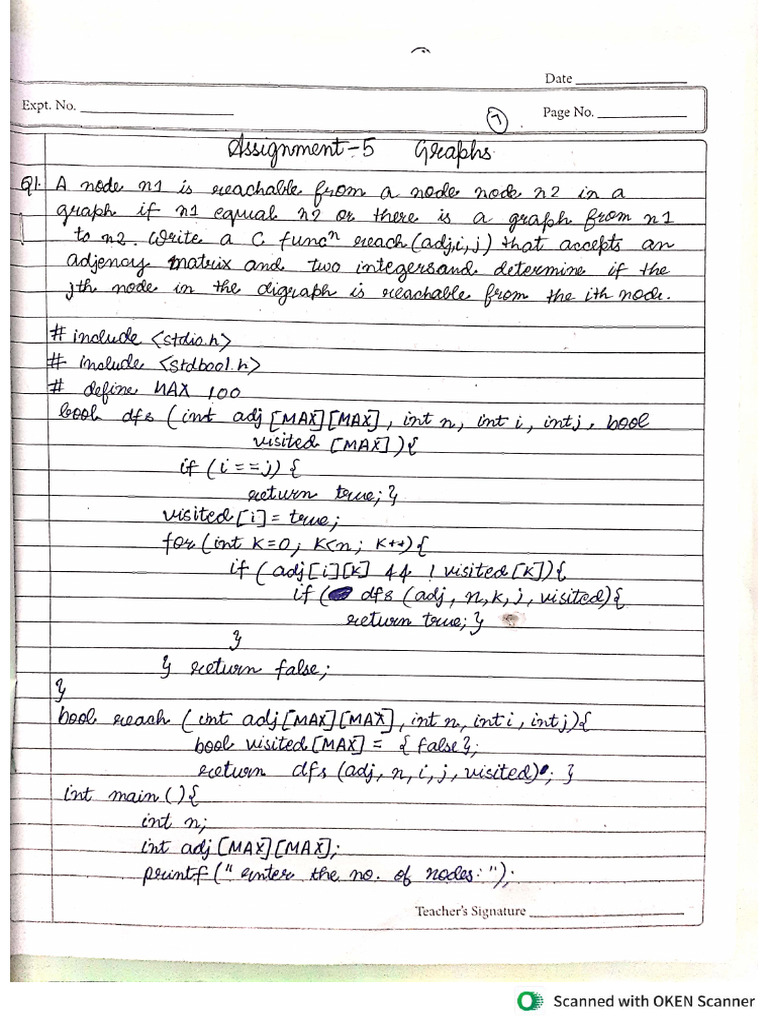 Date
Expt. No.
7
Page No.
Assignment-5 Graphs
Q1. A node n1 is reachable from a node node n2 in a
graph if n1 equal n2 or there is a graph from n1
to n2. Write a C funcⁿ reach(adj,i,j) that accepts an
adjency matrix and two integersand determine if the
jth node in the digraph is reachable from the ith node.
# include <stdio.h>
# include <stdbool.h>
# define MAX 100
bool dfs (int adj [MAX][MAX], int n, int i, int j, bool
visited [MAX]){
if (i==j) {
return true; }
visited[i] = true;
for (int K=0; K<n; K++){
if (adj[i][K] && !visited[K]){
if ( dfs (adj, n,k,j, visited){
return true; }
}
} return false;
}
bool reach (int adj[MAX][MAX], int n, int i, int j){
bool visited[MAX] = {false};
return dfs (adj, n, i, j, visited); }
int main (){
int n;
int adj [MAX][MAX];
printf (" enter the no. of nodes: ");
Teacher's Signature
Scanned with OKEN Scanner